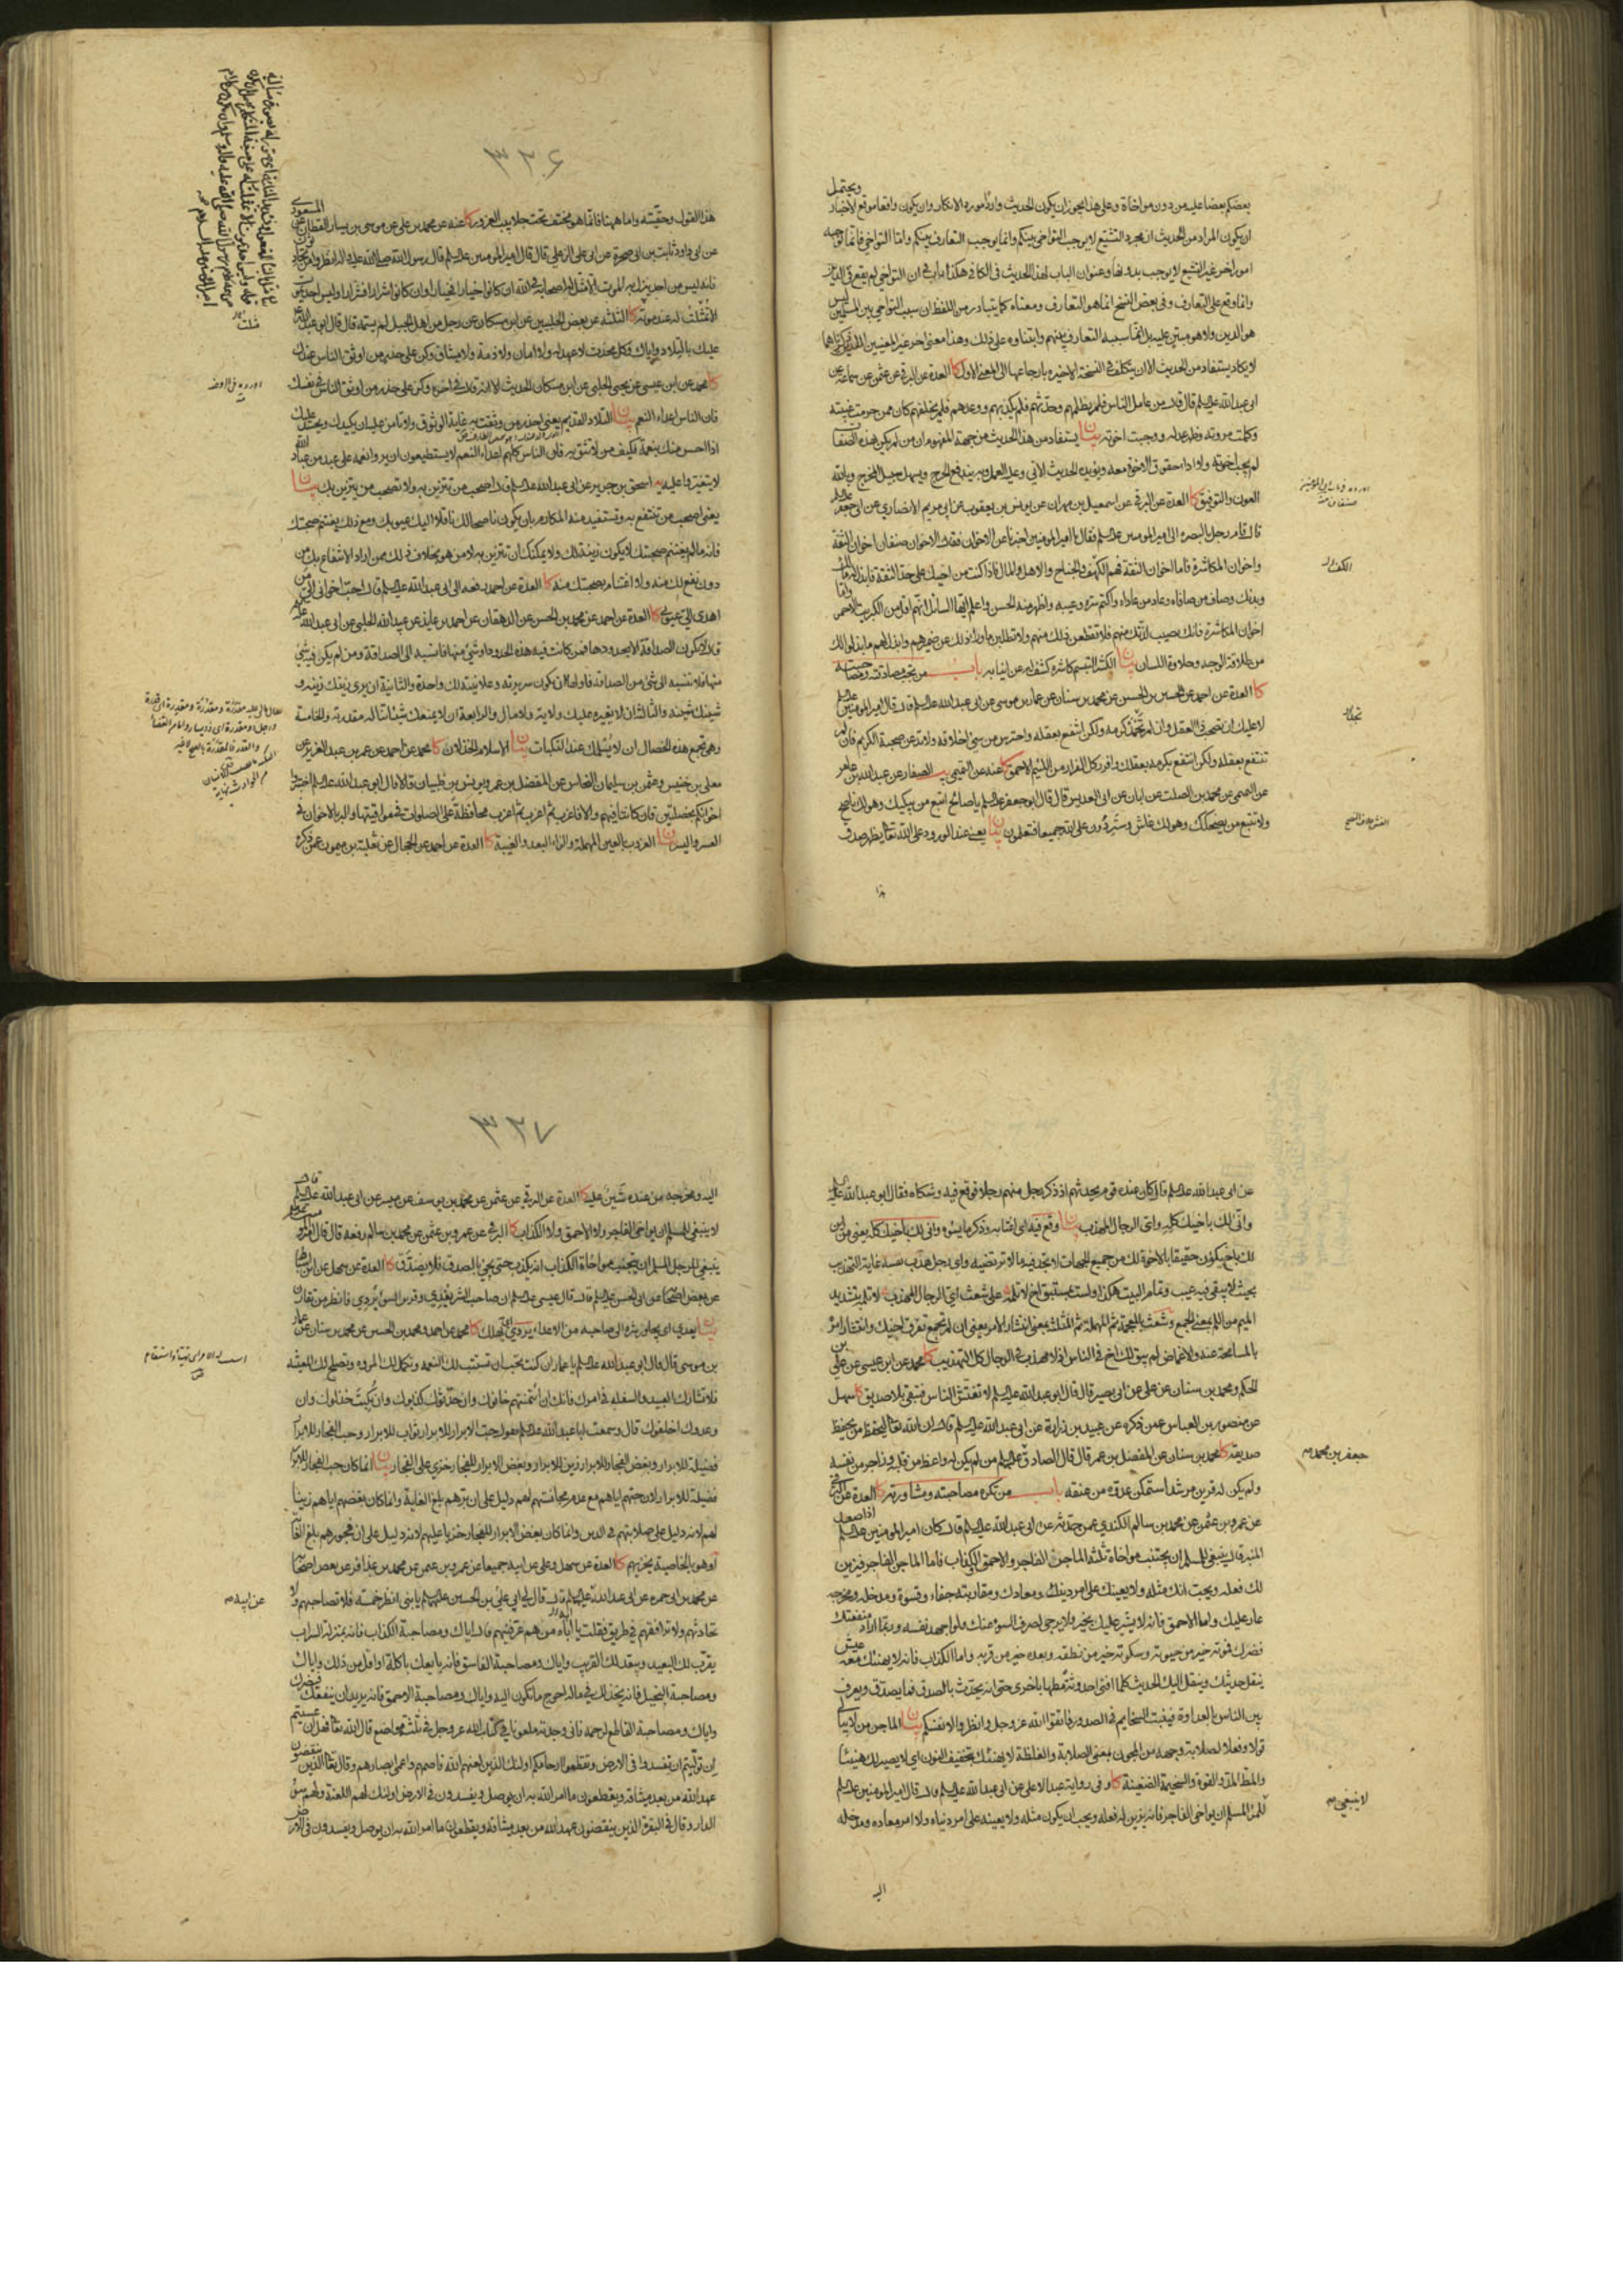 بعضكم بعضا عليه من دون مواخاة وعلى هذا يجوز ان يكون الحديث واردا مورد الانكار وان يكون واقعا موقع الاخبار ويحتمل
ان يكون المراد من الحديث ان مجرد التشيع لا يوجب التواخي بينكم وانما يوجب التعارف بينكم واما التواخي فانما توجبه
امور اخر غير التشيع لا يوجب بدونها وعنوان الباب لهذا الحديث في الكافي هكذا باب في ان التواخي لم يقع في الدين
وانما وقع على التعارف وفي بعض النسخ انما هو التعارف ومعناه كما يتبادر من اللفظ ان سبب التواخي بين المسلمين ليس
هو الدين ولا هو مبتن عليه بل انما سببه التعارف بينهم وابتناوه على ذلك وهذا معنى اخر غير المعنيين
لا يكاد يستفاد من الحديث الا ان يتكلف في النسخة الاخيره بارجاعها الى المعنى الاول كا العدة عن البرقي عن عثمن عن سماعة عن
ابي عبد الله عليه السلم قال قال من عامل الناس فلم يظلمهم وحدثهم فلم يكذبهم ووعدهم فلم يخلفهم كان ممن حرمت غيبته
وكملت مروته وظهر عدله ووجبت اخوته بيان يستفاد من هذا الحديث من جهة المفهوم ان من لم يكن بهذه الصفات
لم يجب اخوته ولا اداء حقوق الاخوة معه ويؤيده الحديث الاتي وعليه العمل وبه يندفع الحرج ويسهل سبيل المخرج وبالله
العون والتوفيق كا العدة عن البرقي عن اسمعيل بن مهران عن يونس بن يعقوب عن ابي مريم الانصاري عن ابي جعفر عليه السلم
قال قام رجل بالبصرة الى امير المومنين عليه السلم فقال يا امير المومنين اخبرنا عن الاخوان فقال الاخوان صنفان اخوان الثقة
واخوان المكاشرة فاما اخوان الثقة فهم الكهف والجناح والاهل والمال فاذا كنت من اخيك على حد الثقة فابذل له مالك
وبدنك وصاف من صافاه وعاد من عاداه واكتم سره وعيبه واظهر منه الحسن واعلم ايها السائل انهم اقل من الكبريت الاحمر واما
اخوان المكاشرة فانك تصيب لذتك منهم فلا تقطعن ذلك منهم ولا تطلبن ما وراء ذلك عن ضميرهم وابذل لهم ما بذلوا لك
من طلاقة الوجه وحلاوة اللسان بيان الكشر التبسم كاشره كشف له عن انيابه باب من تجب مصادقته ومصاحبته
كا العدة عن احمد عن الحسين بن الحسن عن محمد بن سنان عن عمار بن موسى عن ابي عبد الله عليه السلم قال قال امير المومنين عليه السلم
لا عليك ان تصحب ذا العقل وان لم تحمد كرمه ولكن انتفع بعقله واحترس من سيئ اخلاقه ولا تدعن صحبة الكريم فان لم
تنتفع بعقله ولكن انتفع بكرمه بعقلك وافرر كل الفرار من اللئيم الاحمق كا عنه عن التميمي يب الصفار عن عبد الله بن عامر
عن التميمي عن محمد بن الصلت عن ابان عن ابي العديس قال قال ابو جعفر عليه السلم يا صالح اتبع من يبكيك وهو لك ناصح
ولا تتبع من يضحكك وهو لك غاش وستردون على الله جميعا فتعلمون بيان يعني عند الورود على الله تعالى يظهر صدق
هذا
الكف
٣٢٦
هذا القول وحقيته واما ههنا فانما هو مختف تحت جلابيب الغرور كا عنه عن محمد بن علي عن موسى بن يسار القطان عن المسعودي
عن ابي داود ثابت بن ابي صخرة عن ابي الزعلي قال قال امير المومنين عليه السلم قال رسول الله صلى الله عليه واله انظروا من تحادثون
فانه ليس من احد ينزل به الموت الا مثل له اصحابه في الله ان كانوا خيارا فخيارا وان كانوا شرارا فشرارا وليس احد يموت
الا تمثلت له عند موته كا الثلثة عن بعض الحلبيين عن ابن مسكان عن رجل من اهل الجبل لم يسمه قال قال ابو عبد الله عليه السلم
عليك بالتلاد واياك وكل محدث لا عهد له ولا امان ولا ذمة ولا ميثاق وكن على حذر من اوثق الناس عندك
كا محمد عن ابن عيسى عن يحيى الحلبي عن ابن مسكان الحديث الا انه قال في اخره وكن على حذر من اوثق الناس في نفسك
فان الناس اعداء النعم بيان التلاد القديم يعني احذر من وثقت به غاية الوثوق ولا تامن عليه ان يكيدك ويحسد عليك
اذا احس منك بنعمة فكيف من لا تثق به فان الناس كلهم اعداء النعم لا يستطيعون ان يروا نعمة على عبد من عباد الله
لا يتغيروا عليه يه اسحق بن جرير عن ابي عبد الله عليه السلم قال اصحب من تتزين به ولا تصحب من يتزين بك بيان
يعني اصحب من تنتفع به وتستفيد منه المكارم بان يكون ناصحا لك ناقلا اليك عيوبك ومع ذلك يغتنم صحبتك
فانه ما لم يغتنم صحبتك لا يكون زينة لك ولا يمكنك ان تتزين به لا من هو بخلاف ذلك ممن اراد الانتفاع بك من
دون نفع لك منه ولا اغتنام بصحبتك منه كا العدة عن احمد رفعه الى ابي عبد الله عليه السلم قال احب اخواني الي من
اهدى الي عيوبي كا العدة عن احمد عن محمد بن الحسن عن الدهقان عن احمد بن عايذ عن عبيد الله الحلبي عن ابي عبد الله عليه السلم
قال لا تكون الصداقة الا بحدودها فمن كانت فيه هذه الحدود او شيء منها فانسبه الى الصداقة ومن لم يكن فيه شيء
منها فلا تنسبه الى شيء من الصداقة فاولها ان تكون سريرته وعلانيته لك واحدة والثانية ان يرى زينك زينه و
شينك شينه والثالثة ان لا يغيره عليك ولاية ولا مال والرابعة ان لا يمنعك شيئا تناله مقدرته والخامسة
وهي تجمع هذه الخصال ان لا يسلمك عند النكبات بيان الاسلام الخذلان كا محمد عن احمد عن عمر بن عبد العزيز عن
معلى بن خنيس وعثمن بن سليمان النخاس عن المفضل بن عمر ويونس بن ظبيان قالا قال ابو عبد الله عليه السلم اختبروا
اخوانكم بخصلتين فان كانتا فيهم والا فاعزب ثم اعزب ثم اعزب محافظة على الصلوات في مواقيتها والبر بالاخوان في
العسر واليسر بيان العزوب بالعين المهملة والزاء البعد والغيبة كا العدة عن احمد عن الحجال عن ثعلبة بن ميمون عمن ذكره
عن ابي عبد الله عليه السلم قال كان عنده قوم يحدثهم اذ ذكر رجل منهم رجلا فوقع فيه وشكاه فقال ابو عبد الله عليه السلم
وانى لك باخيك كله واي الرجال المهذب بيان وقع فيه اي اغتابه وذكر ما يسوءه وانى لك باخيك كله يعني من اين
لك باخ يكون حقيقا بالاخوة لك من جميع الجهات لا تجد فيه ما لا ترتضيه واي رجل هذب نفسه غاية التهذيب
بحيث لا يبقى فيه عيب وتمام البيت هكذا ولست بمستبق اخا لا تلمه على شعث اي الرجال المهذب لا تلمه بتشديد
الميم من اللم بمعنى الجمع وشعث بالمعجمة ثم المهملة ثم المثلثة بمعنى انتشار الامر يعني ان لم تجمع تفرق اخيك وانتشار امره
بالمسامحة عنه والاغماض لم يبق لك اخ في الناس اذ لا مهذب في الرجال كل التهذيب كا محمد عن ابن عيسى عن علي بن
الحكم ومحمد بن سنان عن علي عن ابي بصير قال قال ابو عبد الله عليه السلم لا تفتش الناس فتبقى بلا صديق كا سهل
عن منصور بن العباس عمن ذكره عن عبيد بن زرارة عن ابي عبد الله عليه السلم قال ان الله تعالى ليحفظ من يحفظ
صديقه كا محمد بن سنان عن المفضل بن عمر قال قال الصادق عليه السلم من لم يكن له واعظ من قلبه وزاجر من نفسه
ولم يكن له قرين مرشد استمكن عدوه من عنقه باب من تكره مصاحبته ومشاورته كا العدة عن البرقي
عن عمرو بن عثمن عن محمد بن سالم الكندي عمن حدثه عن ابي عبد الله عليه السلم قال كان امير المومنين عليه السلم اذا صعد
المنبر قال ينبغي للمسلم ان يجتنب مواخاة ثلثة الماجن الفاجر والاحمق والكذاب فاما الماجن الفاجر فيزين
لك فعله ويحب انك مثله ولا يعينك على امر دينك ومعادك ومقارنته جفاء وقسوة ومدخله ومخرجه
عار عليك واما الاحمق فانه لا يشير عليك بخير ولا يرجى لصرف السوء عنك ولو اجهد نفسه وربما اراد منفعتك
فضرك فموته خير من حيوته وسكوته خير من نطقه وبعده خير من قربه واما الكذاب فانه لا يهنئك معه عيش
ينقل حديثك وينقل اليك الحديث كلما افنى احدوثة مطها باخرى حتى انه يحدث بالصدق فما يصدق ويعرف
بين الناس بالعداوة فينبت السخايم في الصدور فاتقوا الله عز وجل وانظروا لانفسكم بيان الماجن من لا يبالي
قولا وفعلا لصلابة وجهه من المجون بمعنى الصلابة والغلظة لا يهنئك بتخفيف النون اي لا يصير لك هنيئا
والمط المد والقوة والسخيمة الضغينة كا وفي رواية عبد الاعلى عن ابي عبد الله عليه السلم قال قال امير المومنين عليه السلم
للمرء المسلم ان يواخي الفاجر فانه يزين له فعله ويحب ان يكون مثله ولا يعينه على امر دنياه ولا امر معاده ومدخله
اليه
جعفر بن محمد
لا ينبغي
٣٢٧
اليه ومخرجه من عنده شين عليه كا العدة عن البرقي عن عثمن عن محمد بن يوسف عن ميسر عن ابي عبد الله عليه السلم قال
لا ينبغي للمسلم ان يواخي الفاجر ولا الاحمق ولا الكذاب كا البرقي عن عمرو بن عثمن عن محمد بن سالم رفعه قال قال امير المومنين
ينبغي للرجل المسلم ان يجتنب مواخاة الكذاب انه يكذب حتى يجيء بالصدق فلا يصدق كا العدة عن سهل عن ابن اسباط
عن بعض اصحابنا عن ابي الحسن عليه السلم قال قال عيسى عليه السلم ان صاحب الشر يعدي وقرين السوء يردي فانظر من تقارن
بيان يعدي اي يجاوز شره الى صاحبه من الاعداء يردي اي يهلك كا محمد عن احمد ومحمد بن الحسين عن محمد بن سنان عن عمار
بن موسى قال قال ابو عبد الله عليه السلم يا عمار ان كنت تحب ان تستتب لك النعمة وتكمل لك المروة وتصلح لك المعيشة
فلا تشارك العبيد والسفلة في امرك فانك ان ائتمنتهم خانوك وان حدثوك كذبوك وان نكبت خذلوك وان
وعدوك اخلفوك قال وسمعت ابا عبد الله عليه السلم يقول حب الابرار للابرار ثواب للابرار وحب الفجار للابرار
فضيلة للابرار وبغض الفجار للابرار زين للابرار وبغض الابرار للفجار خزي على الفجار بيان انما كان حب الفجار للابرار
فضيلة للابرار لان حبهم اياهم مع عدم مجانستهم لهم دليل على ان برهم بلغ الغاية وانما كان بغضهم اياهم زينا
لهم لانه دليل على صلابتهم في الدين وانما كان بغض الابرار للفجار خزيا عليهم لانه دليل على ان فجورهم بلغ الغاية
او هو بالخاصية يخزيهم كا العدة عن سهل وعلي عن ابيه جميعا عن عمرو بن عثمن عن محمد بن عذافر عن بعض اصحابنا
عن محمد بن ابي حمزه عن ابي عبد الله عليه السلم قال قال لي ابي علي بن الحسين عليهما السلم يا بني انظر خمسة فلا تصاحبهم ولا
تحادثهم ولا ترافقهم في طريق فقلت يا اباه من هم عرفنيهم قال اياك ومصاحبة الكذاب فانه بمنزلة السراب
يقرب لك البعيد ويبعد لك القريب واياك ومصاحبة الفاسق فانه بايعك باكلة او اقل من ذلك واياك
ومصاحبة البخيل فانه يخذلك في ماله احوج ما تكون اليه واياك ومصاحبة الاحمق فانه يريد ان ينفعك فيضرك
واياك ومصاحبة القاطع لرحمه فاني وجدته ملعونا في كتاب الله عز وجل في ثلثة مواضع قال الله تعالى فهل عسيتم
ان توليتم ان تفسدوا في الارض وتقطعوا ارحامكم اولئك الذين لعنهم الله فاصمهم واعمى ابصارهم وقال تعالى الذين ينقضون
عهد الله من بعد ميثاقه ويقطعون ما امر الله به ان يوصل ويفسدون في الارض اولئك لهم اللعنة ولهم سوء
الدار وقال في البقرة الذين ينقضون عهد الله من بعد ميثاقه ويقطعون ما امر الله به ان يوصل ويفسدون في الارض
عن ابيه